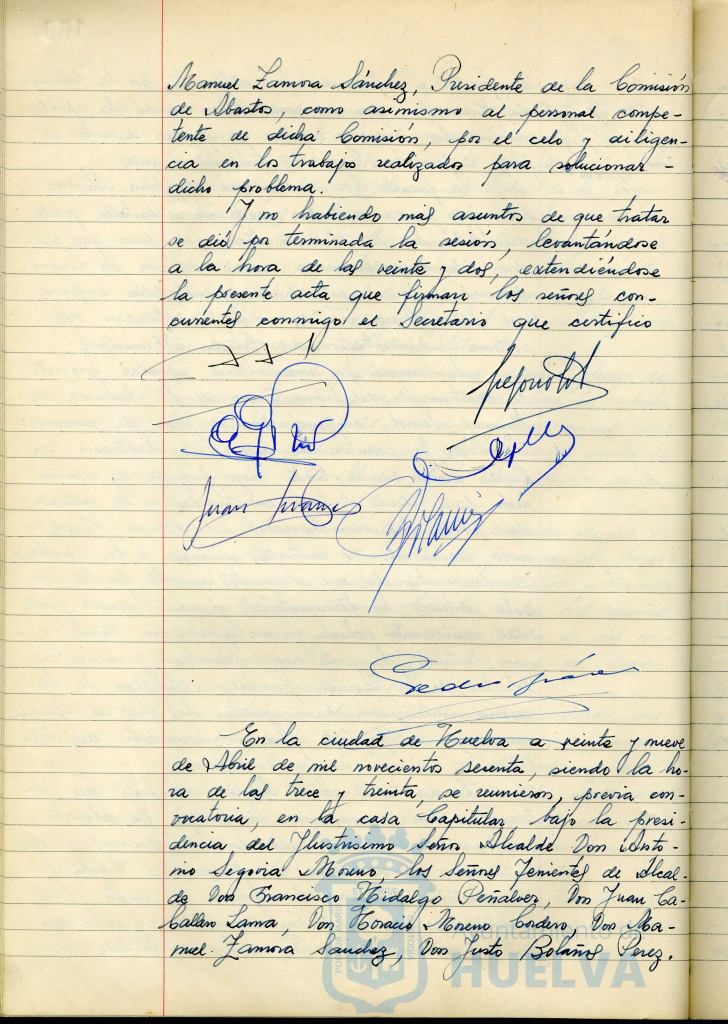 Manuel Zamora Sánchez, Presidente de la Comisión
de Abastos, como asimismo al personal compe-
tente de dicha Comisión, por el celo y diligen-
cia en los trabajos realizados para solucionar -
dicho problema.
Y no habiendo más asuntos de que tratar
se dió por terminada la sesión, levantándose
a la hora de las veinte y dos, extendiéndose
la presente acta que firman los señores con-
currentes conmigo el Secretario que certifico
Juan
En la ciudad de Huelva a veinte y nueve
de Abril de mil novecientos sesenta, siendo la ho-
ra de las trece y treinta, se reunieron, previa con-
vocatoria, en la casa Capitular bajo la presi-
dencia del Ilustrisimo Señor Alcalde Don Anto-
nio Segovia Moreno, los Señores Tenientes de Alcal-
de Don Francisco Hidalgo Peñalver, Don Juan Ca-
ballero Lama, Don Horacio Moreno Cordero, Don Ma-
nuel Zamora Sanchez, Don Justo Bolaños Perez.
Ayuntamiento de
HUELVA